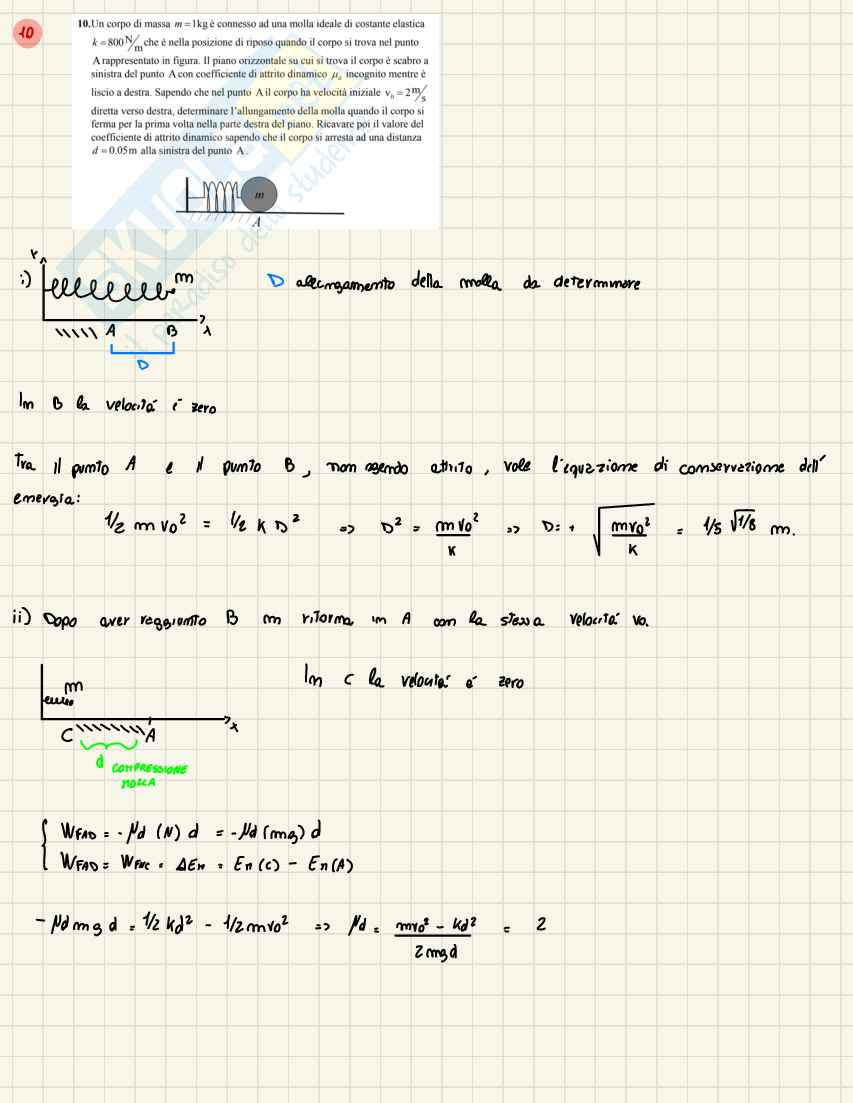 10
10.Un corpo di massa m = 1kg è connesso ad una molla ideale di costante elastica
k = 800 N/m che è nella posizione di riposo quando il corpo si trova nel punto
A rappresentato in figura. Il piano orizzontale su cui si trova il corpo è scabro a
sinistra del punto A con coefficiente di attrito dinamico μd incognito mentre è
liscio a destra. Sapendo che nel punto A il corpo ha velocità iniziale v₀ = 2 m/s
diretta verso destra, determinare l'allungamento della molla quando il corpo si
ferma per la prima volta nella parte destra del piano. Ricavare poi il valore del
coefficiente di attrito dinamico sapendo che il corpo si arresta ad una distanza
d = 0.05m alla sinistra del punto A.
m
A
i) m
D allungamento della molla da determinare
A B x
D
In B la velocità è zero
Tra il punto A e il punto B, non agendo attrito, vale l'equazione di conservazione dell'
energia:
1/2 m v₀² = 1/2 K D² => D² = mv₀²/K => D = + √(mv₀²/K) = 1/5 √1/8 m.
ii) Dopo aver raggiunto B m ritorna in A con la stessa velocità v₀.
In C la velocità è zero
m
C A x
d COMPRESSIONE
MOLLA
WFAD = - μd (N) d = - μd (mg) d
WFAD = WFNC = ΔEM = EM(C) - EM(A)
- μd m g d = 1/2 Kd² - 1/2 mv₀² => μd = (mv₀² - Kd²)/(2mgd) = 2
SKUOLA.net
il paradiso dello studente